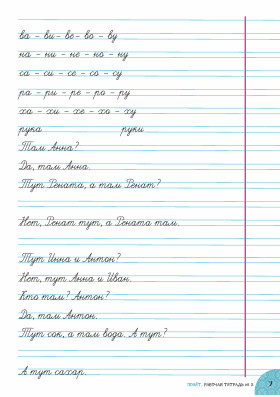 ва – ви – ве – во – ву
на – ни – не – но – ну
са – си – се – со – су
ра – ри – ре – ро – ру
ха – хи – хе – хо – ху
рука руки
Там Анна?
Да, там Анна.
Тут Рената, а там Ренат?
Нет, Ренат тут, а Рената там.
Тут Инна и Антон?
Нет, тут Анна и Иван.
Кто там? Антон?
Да, там Антон.
Тут сок, а там вода. А тут?
А тут сахар.
РАБОЧАЯ ТЕТРАДЬ № 3 7